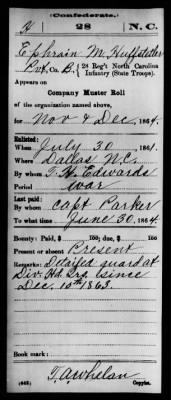 (Confederate.)
H 28 N.C.
Ephraim M. Huffstetler
Pvt, Co. B, 28 Reg't North Carolina
Infantry (State Troops)
Appears on
Company Muster Roll
of the organization named above,
for Nov & Dec, 1864.
Enlisted:
When July 30, 1861.
Where Dallas N.C.
By whom T. H. Edwards
Period war
Last paid:
By whom Capt Parker
To what time June 30, 1864.
Bounty: Paid, $ 100; due, $ 100
Present or absent Present
Remarks: Detailed guard at
Div. Hd. Qrs. since
Dec. 10th 1863.
Book mark:
T. A. Whelan
(642) Copyist.